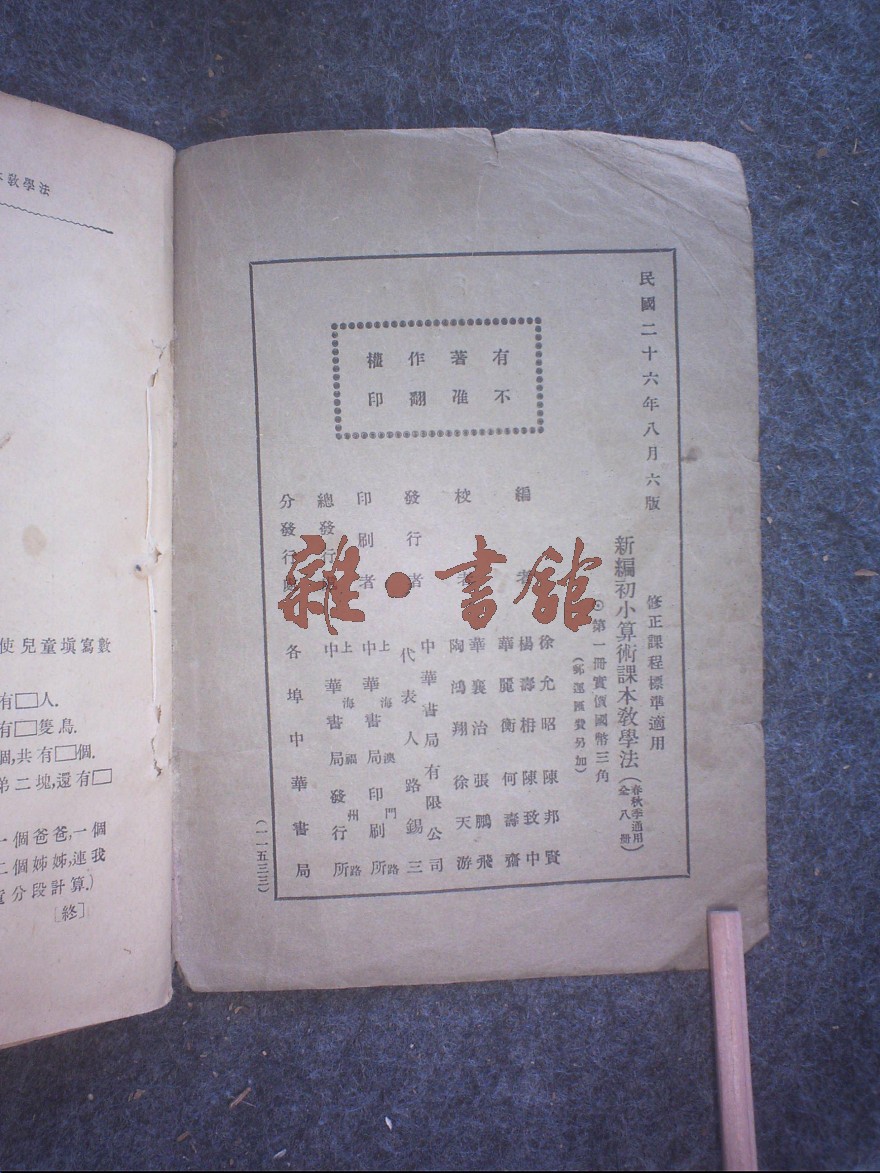 民國二十六年八月六版
修正課程標準適用
新編初小算術課本教學法(春秋季適用 全八冊)
◎第一冊實價國幣三角
(郵運匯費另加)
有著作權
不准翻印
編者
徐允昭 陳邦賢
楊壽枏 陳致中
華麗衡 何壽齋
校者
華襄治 張鵬飛
陶鴻翔 徐天游
發行者
中華書局有限公司
代表人路錫三
印刷者
上海澳門路
中華書局印刷所
總發行處
上海福州路
中華書局發行所
分發行處
各埠中華書局
(一一五三三)
雜·書館
教學法
使兒童填寫數
有□人.
有□隻鳥.
個,共有□個.
第二塊,還有□
一個爸爸,一個
二個姊姊,連我
分段計算.)
[終]